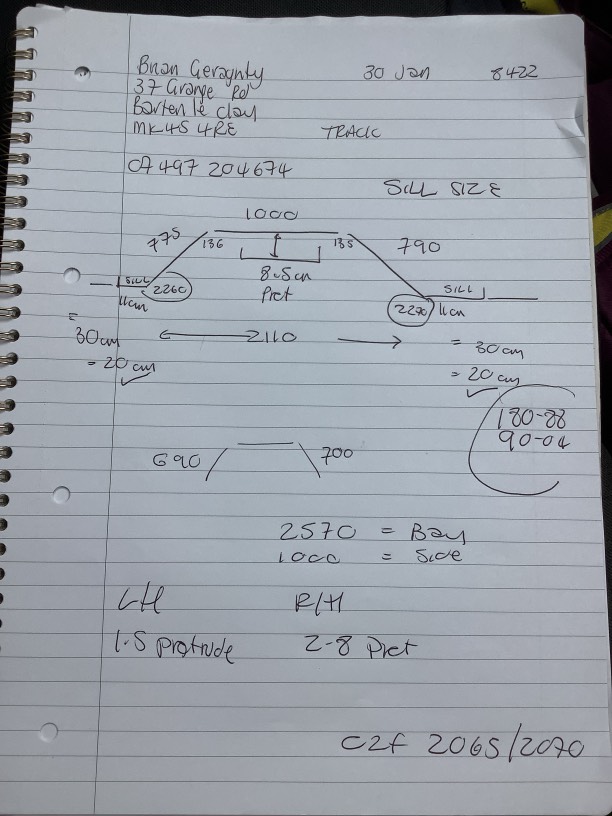 Brian Geragnty 30 Jan 8422
37 Grange Rd
Barten le clay
MK45 4RE TRACK
07497 204674
SILL SIZE
1000
775 136 135 790
8.5cm
Prot
SILL 2260 SILL
11cm 2290 11cm
= 30cm 2110 = 30cm
= 20cm = 20cm
180-88
90-04
690 700
2570 = Bay
1000 = Side
LH R/H
1.5 Protrude 2-8 Prot
C2f 2065/2070